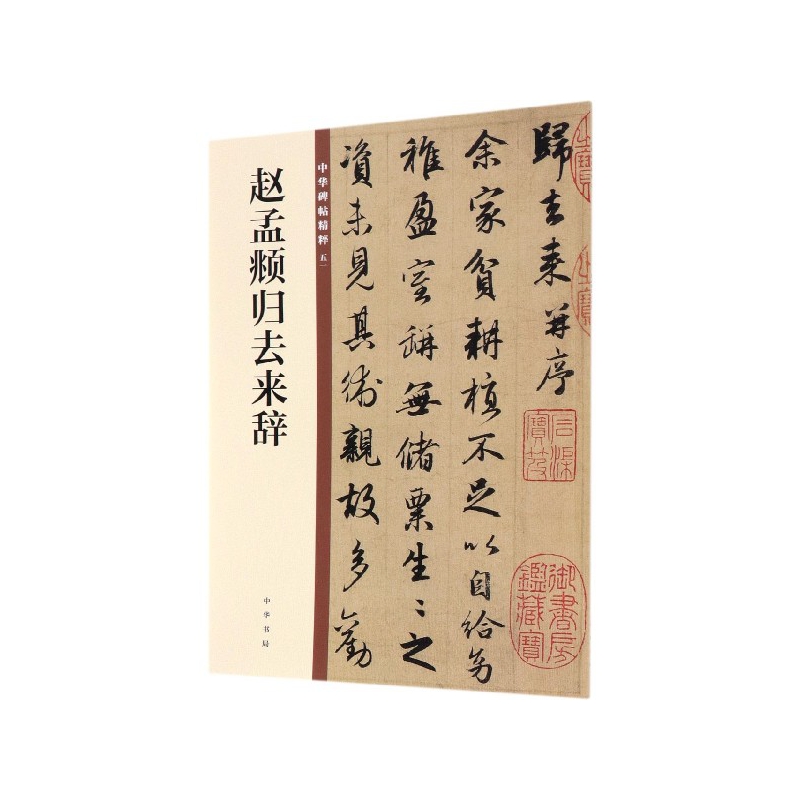 赵孟頫归去来辞
中华碑帖精粹 五一
中华书局
歸去来并序
余家貧耕植不足以自給幼
稚盈室缾無儲粟生〻之
資未見其術親故多勸
石渠寶笈
御書房鑑藏寶